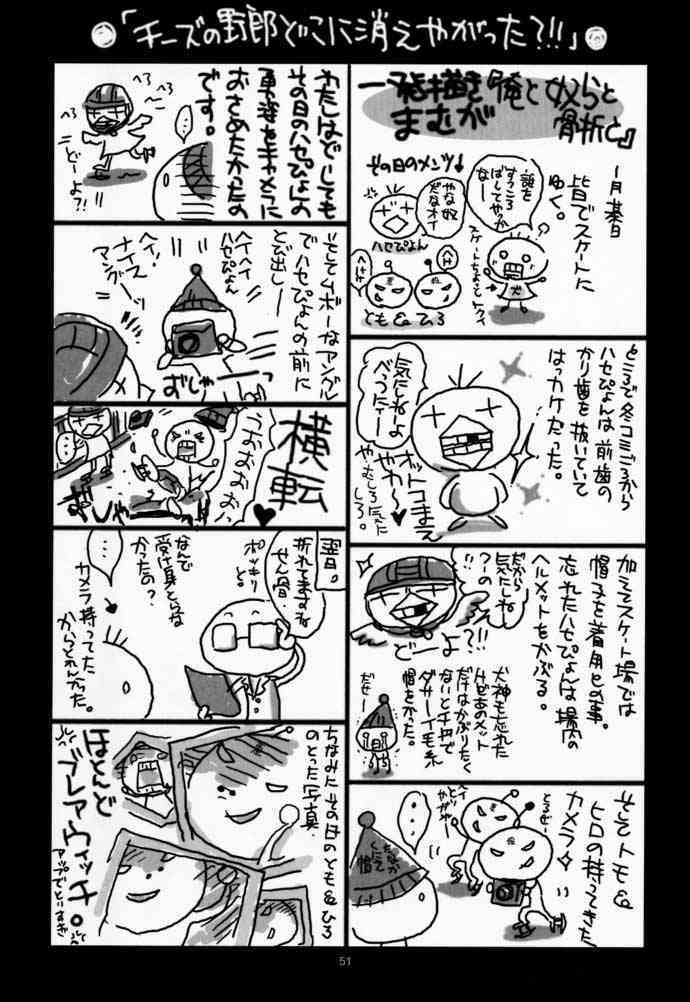 「チーズの野郎どこに消えやがった?!!」
一発描き
まむが
『俺と奴らと
骨折と』
1月某日
皆でスケートに
ゆく。
その日のメンツ↓
誰を
すっころ
ばしてやっか
なー
やな奴
だなオイ
ハセぴょん
とも&ひろ
犬
ところで冬コミごろから
ハセぴょんは前歯の
かり歯を抜いていて
はっカケだった。
気にしねぇよ
べつにィー
オットコまえ
やわ〜
やたしろ気に
しろ。
加えてスケート場では
帽子を着用との事。
忘れたハセぴょんは場内の
ヘルメットをかぶる。
だから
気にしね
っつーの
どーよ?!!
犬神も忘れた
けどあのメット
だけはかぶりたく
ないと千円で
ダサーイ毛糸
帽をかった。
だせー
そしてトモ&
ヒロの持ってきた
カメラ
とるぞー
・・・
わたしはどーしても
その日のハセぴょんの
勇姿をキャメラに
おさめたかったの
です。
へろ
へろ
どーよ?!
・・・
そしてムボーなアングル
でハセぴょんの前に
とび出しー
ヘイヘイ
ハセぴょん
ヘイ!
ナイス
アングーッ
おしゃーっ
横転
うおおおおい
・・・
翌日。
折れてますね
せん骨
ポッキリ
と。
なんで
受け身とらな
かったの?
・・・
カメラ持ってた
からとれんかった。
ちなみにその日のとも&ひろ
のとった写真
ほとんど
ブレアウィッチ。
アップでとりすぎ
51